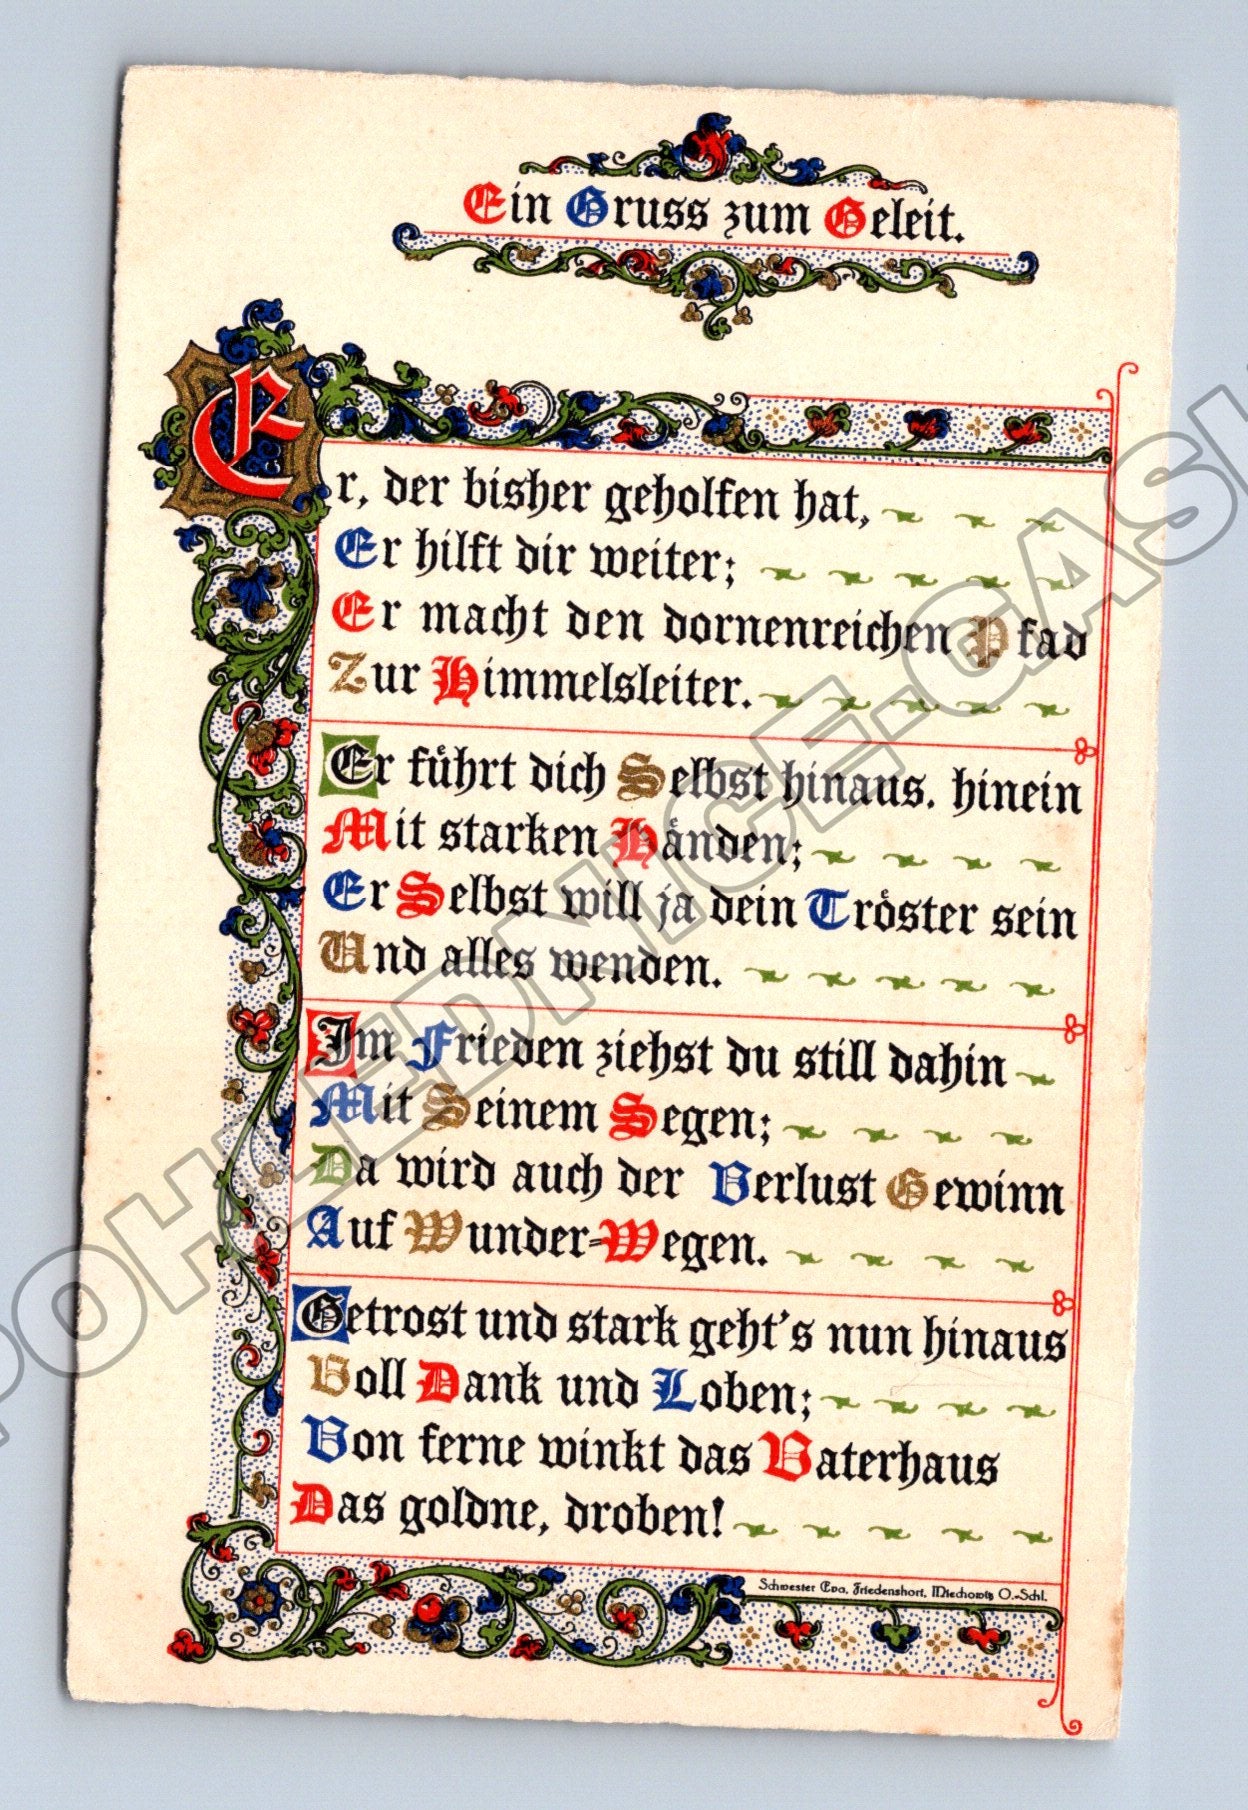 Ein Gruss zum Geleit.
Er, der bisher geholfen hat,
Er hilft dir weiter;
Er macht den dornenreichen Pfad
Zur Himmelsleiter.
Er führt dich Selbst hinaus, hinein
Mit starken Händen;
Er Selbst will ja dein Tröster sein
Und alles wenden.
Im Frieden ziehst du still dahin
Mit Seinem Segen;
Da wird auch der Verlust Gewinn
Auf Wunder-Wegen.
Getrost und stark geht's nun hinaus
Voll Dank und Loben;
Von ferne winkt das Vaterhaus
Das goldne, droben!
Schwester Eva, Friedenshort, Miechowitz O.-Schl.
POHLEDNICE.CASH